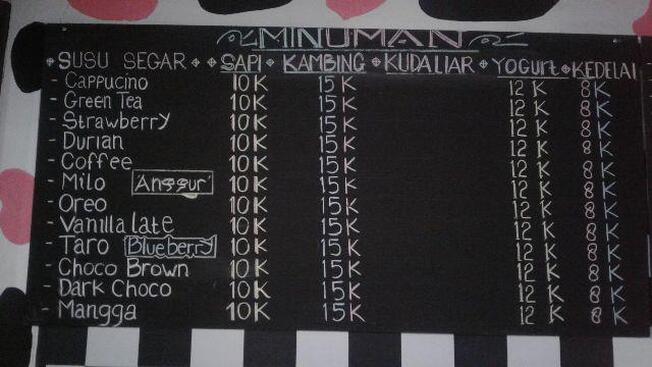 MINUMAN
SUSU SEGAR SAPI KAMBING KUDALIAR YOGURT KEDELAI
- Cappucino 10K 15K 12K 8K
- Green Tea 10K 15K 12K 8K
- Strawberry 10K 15K 12K 8K
- Durian 10K 15K 12K 8K
- Coffee 10K 15K 12K 8K
- Milo Anggur 10K 15K 12K 8K
- Oreo 10K 15K 12K 8K
- Vanilla late 10K 15K 12K 8K
- Taro Blueberry 10K 15K 12K 8K
- Choco Brown 10K 15K 12K 8K
- Dark Choco 10K 15K 12K 8K
- Mangga 10K 15K 12K 8K